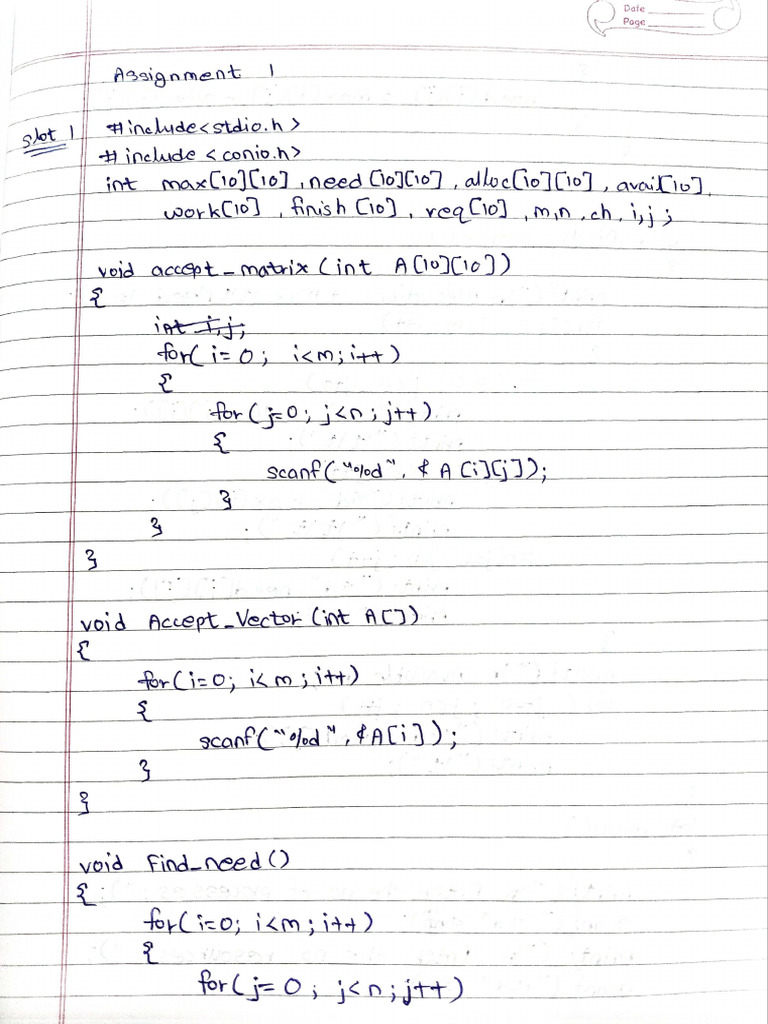 Date
Page
Assignment 1
Slot 1
#include<stdio.h>
#include <conio.h>
int max[10][10], need[10][10], alloc[10][10], avail[10],
work[10], finish[10], req[10], m,n, ch, i,j;
void accept_matrix (int A[10][10])
{
int i,j;
for(i=0; i<m; i++)
{
for(j=0; j<n; j++)
{
scanf("%d", &A[i][j]);
}
}
}
void Accept_Vector (int A[])
{
for(i=0; i<m; i++)
{
scanf("%d", &A[i]);
}
}
void find_need()
{
for(i=0; i<m; i++)
{
for(j=0; j<n; j++)